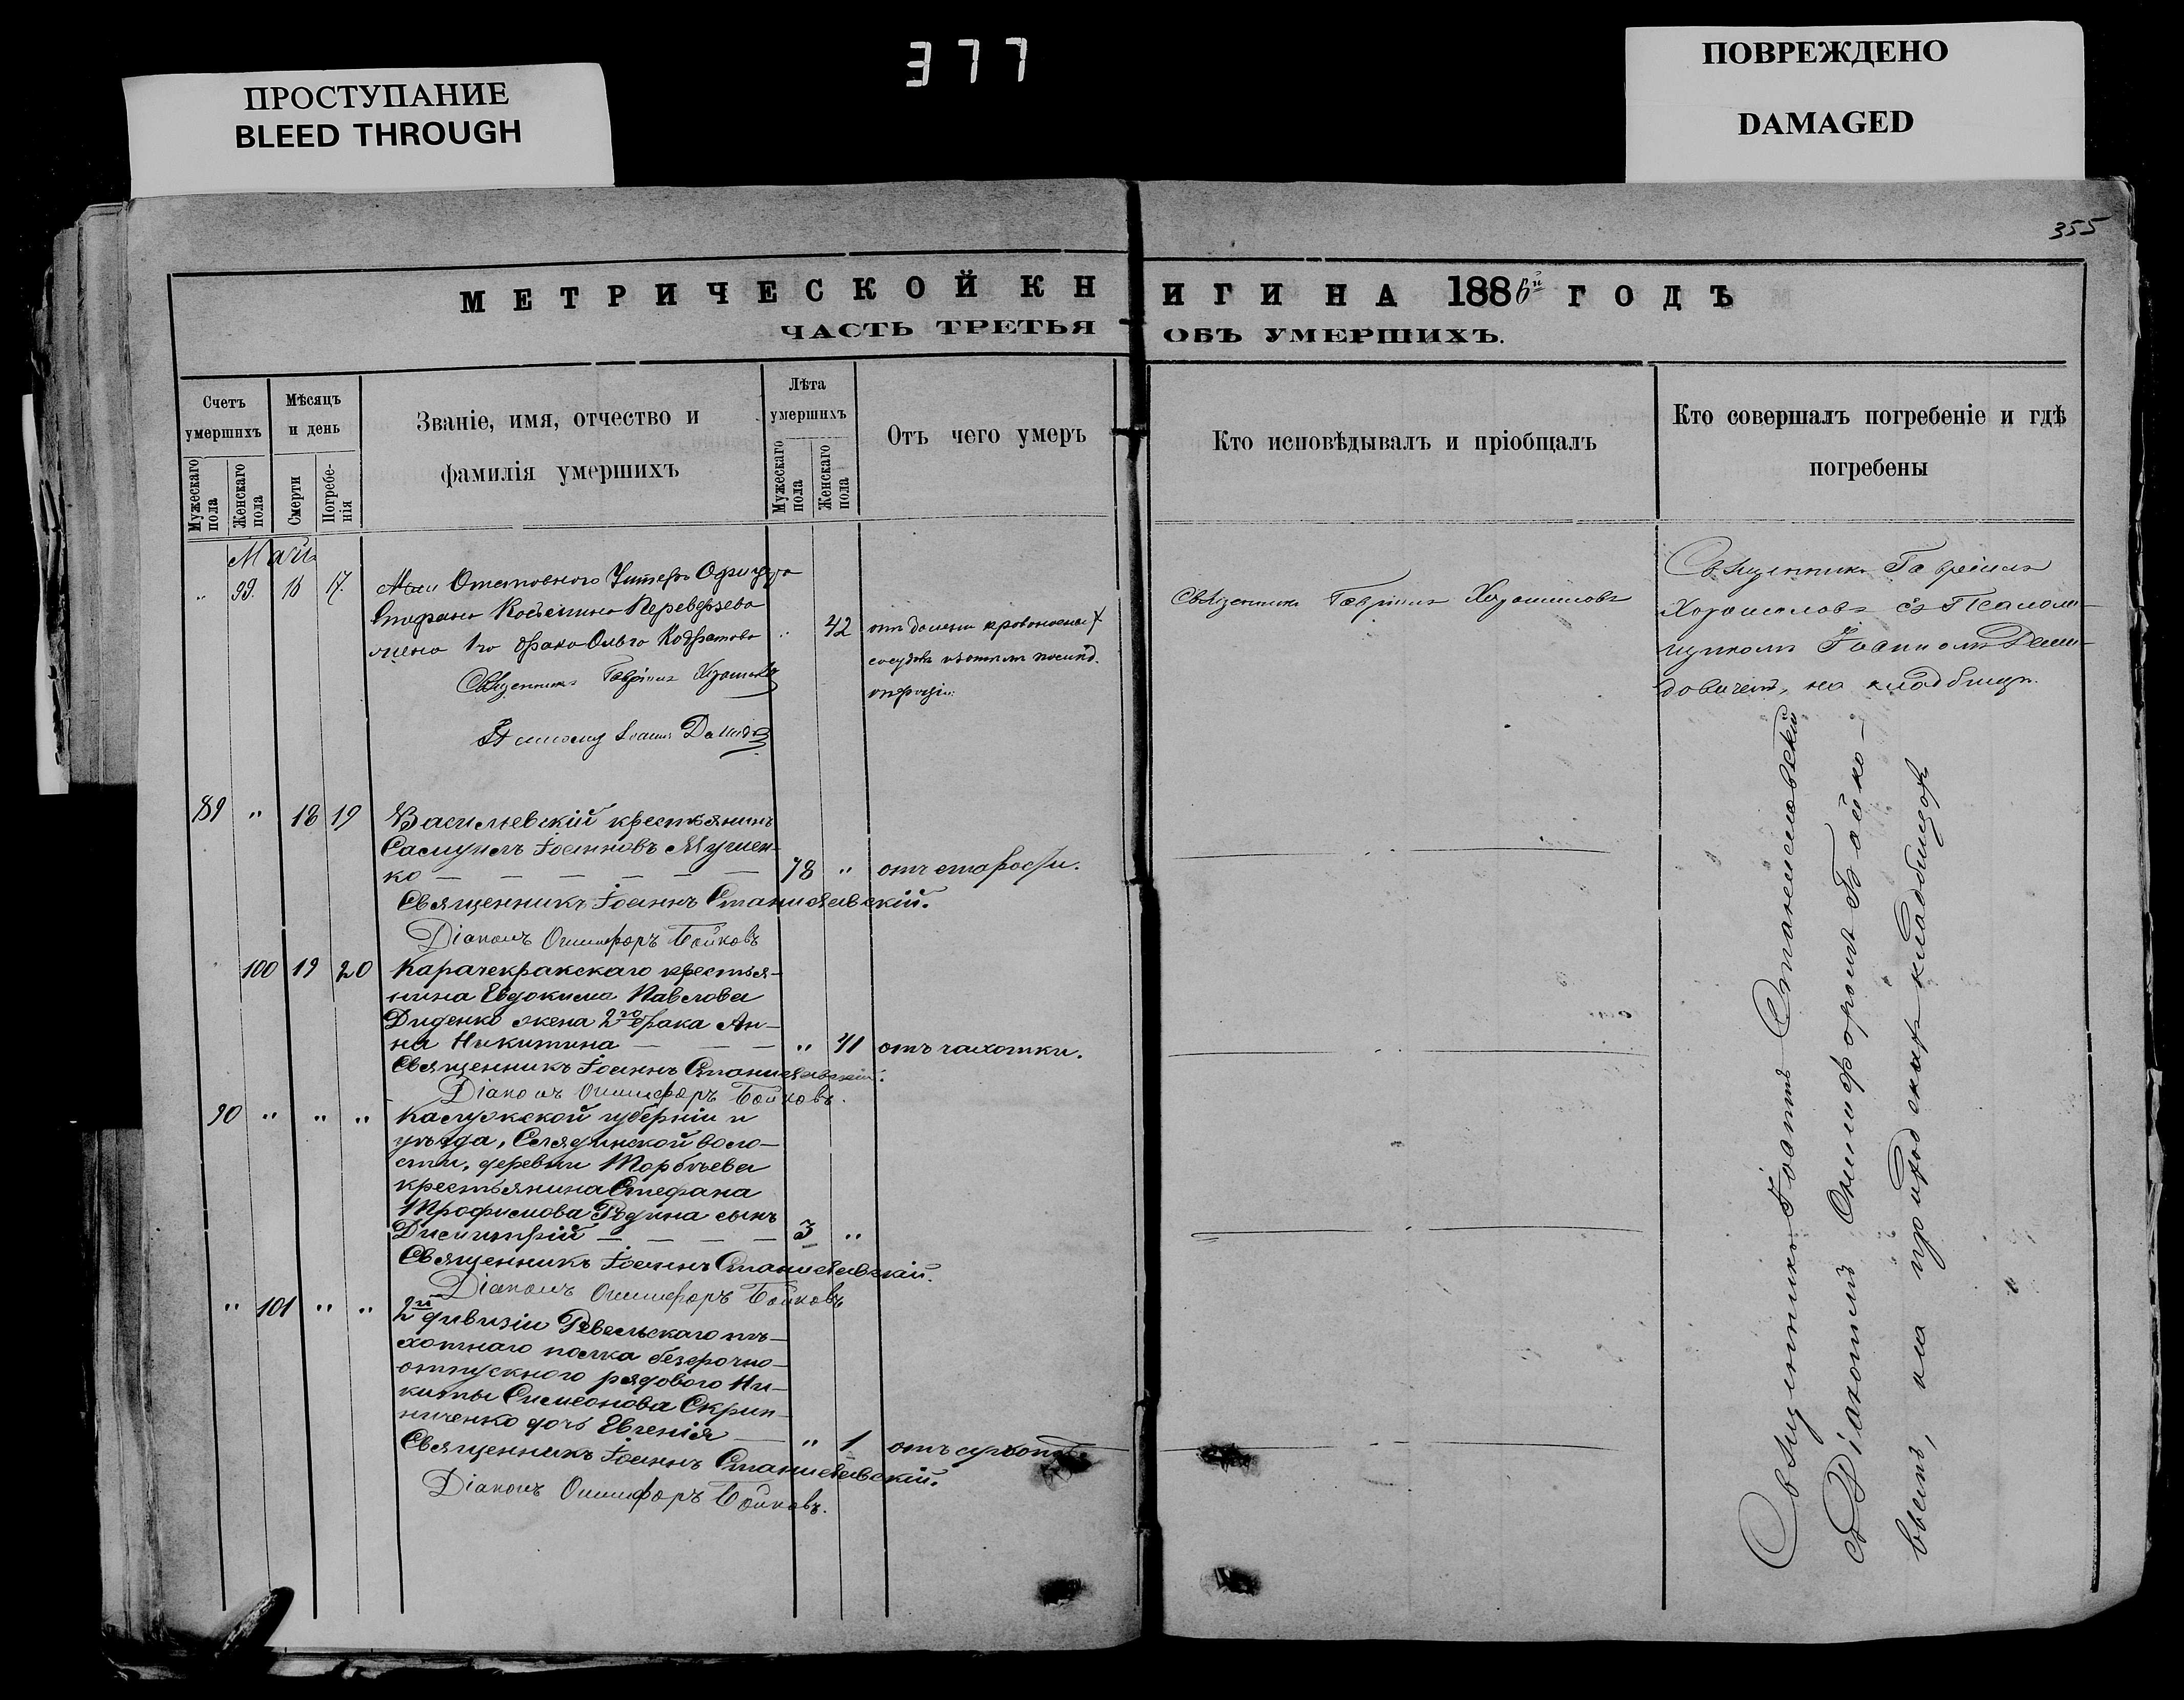 377
ПРОСТУПАНИЕ
BLEED THROUGH
ПОВРЕЖДЕНО
DAMAGED
355
МЕТРИЧЕСКОЙ КНИГИ НА 1886й ГОДЪ
ЧАСТЬ ТРЕТЬЯ ОБЪ УМЕРШИХЪ.
Счетъ умершихъ
Мужескаго пола
Женскаго пола
Мѣсяцъ и день
Смерти
Погребенія
Званіе, имя, отчество и
фамилія умершихъ
Лѣта умершихъ
Мужескаго пола
Женскаго пола
Отъ чего умеръ
Кто исповѣдывалъ и пріобщалъ
Кто совершалъ погребеніе и гдѣ
погребены
„ 99. 17.
Унтеръ Офицера
Стефана Переверзева
жена 1го брака Ольга „ 42
Священникъ Гавріилъ
Іоаннъ
Священникъ Гавріилъ
Священникъ Гавріилъ
съ Псалом-
щикомъ Іоанномъ
на кладбищѣ.
89 „ 18 19 Васильевскій крестьянинъ
Самуилъ Іоанновъ
ко — — — — — — 78 „ отъ старости.
Священникъ Іоаннъ Станиславскій.
Діаконъ Онисифоръ Бойковъ
100 19 20 Карачекракскаго крестья-
нина Евдокима Павлова
Диденко жена 2го брака Ан-
на Никитина — — — „ 41 отъ чахотки.
Священникъ Іоаннъ Станиславскій.
Діаконъ Онисифоръ Бойковъ.
90 „ „ „ Калужской губерніи и
уѣзда, волос-
сти, деревни
крестьянина Стефана
Трофимова Родина сынъ
Димитрій — — — — 3 „
Священникъ Іоаннъ Станиславскій.
Діаконъ Онисифоръ Бойковъ
„ 101 „ „ 2й дивизіи Ревельскаго пѣ-
хотнаго полка безсрочно-
отпускного рядового Ни-
киты Симеонова Скрип-
ниченко дочь Евгенія — „ 1 отъ сухот
Священникъ Іоаннъ Станиславскій.
Діаконъ Онисифоръ Бойковъ.
Священникъ Іоаннъ Станиславскій
съ Діакономъ Онисифоромъ Бойко-
вымъ, на приходскомъ кладбищѣ